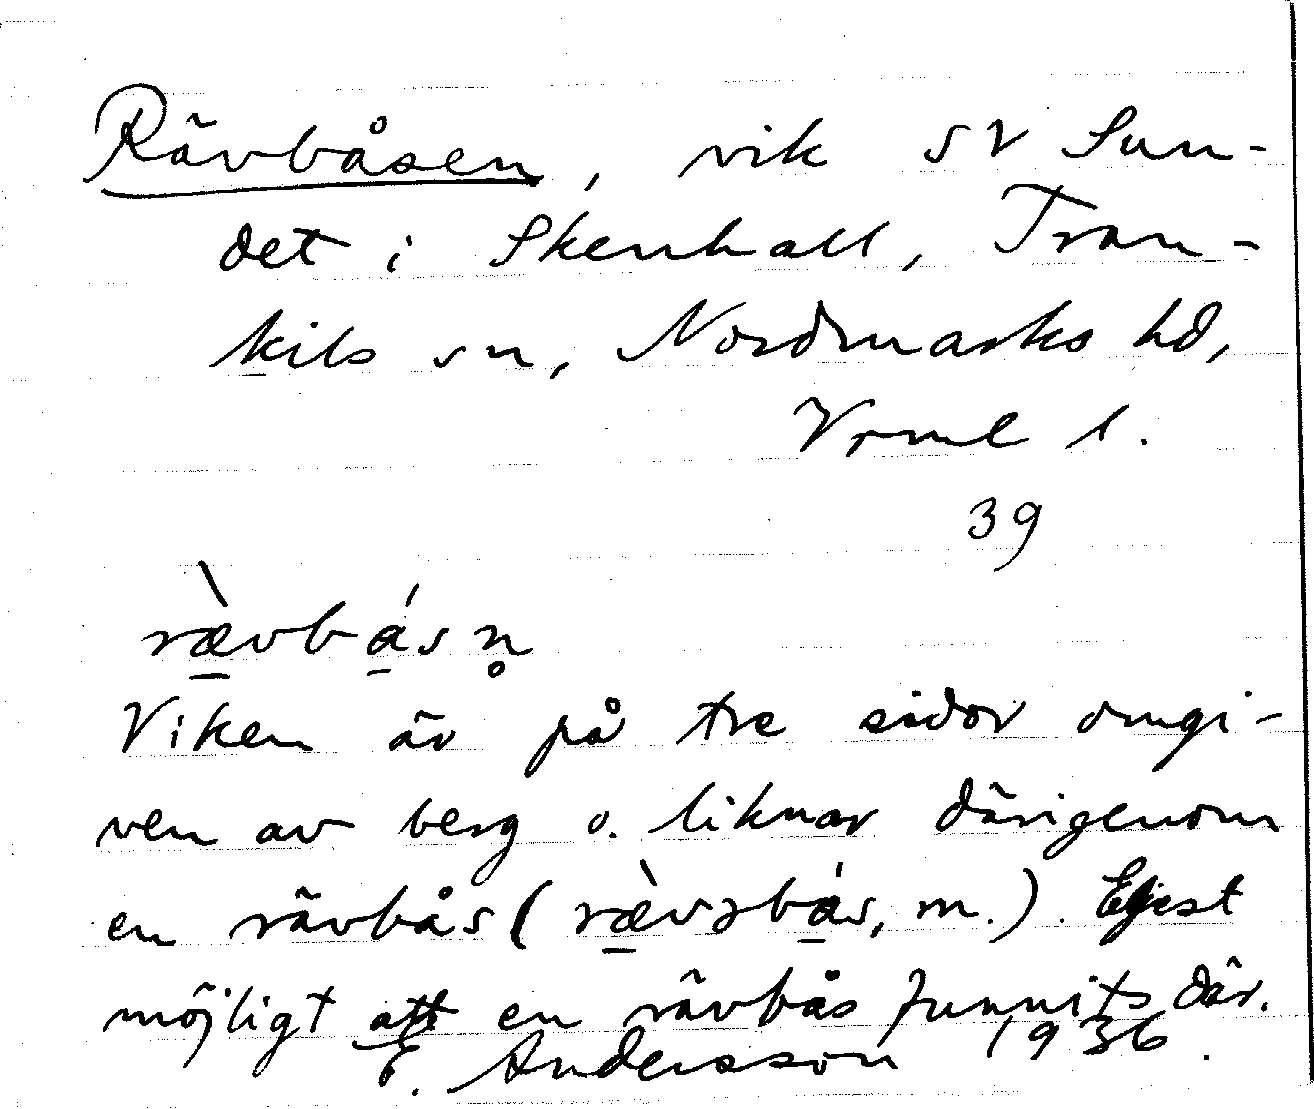 Rävbåsen, vik SV Sun-
det i Skenhall, Tran-
kils sn, Nordmarks hd,
Vrml l.
39
rævbásn̥
Viken är på tre sidor omgi-
ven av berg o. liknar därigenom
en rävbås (rævs̱bás, m.). Ejest
möjligt att en rävbås funnits där.
E. Andersson 1936.